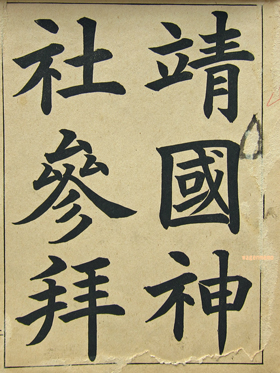 靖國神
社參拜